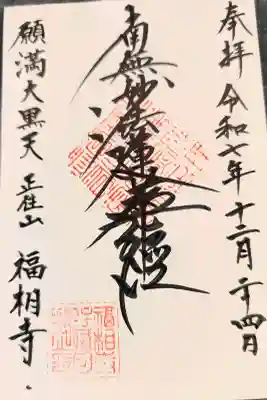 奉拝 令和七年十二月二十四日
南無妙法蓮華経
願満大黒天 正住山 福相寺